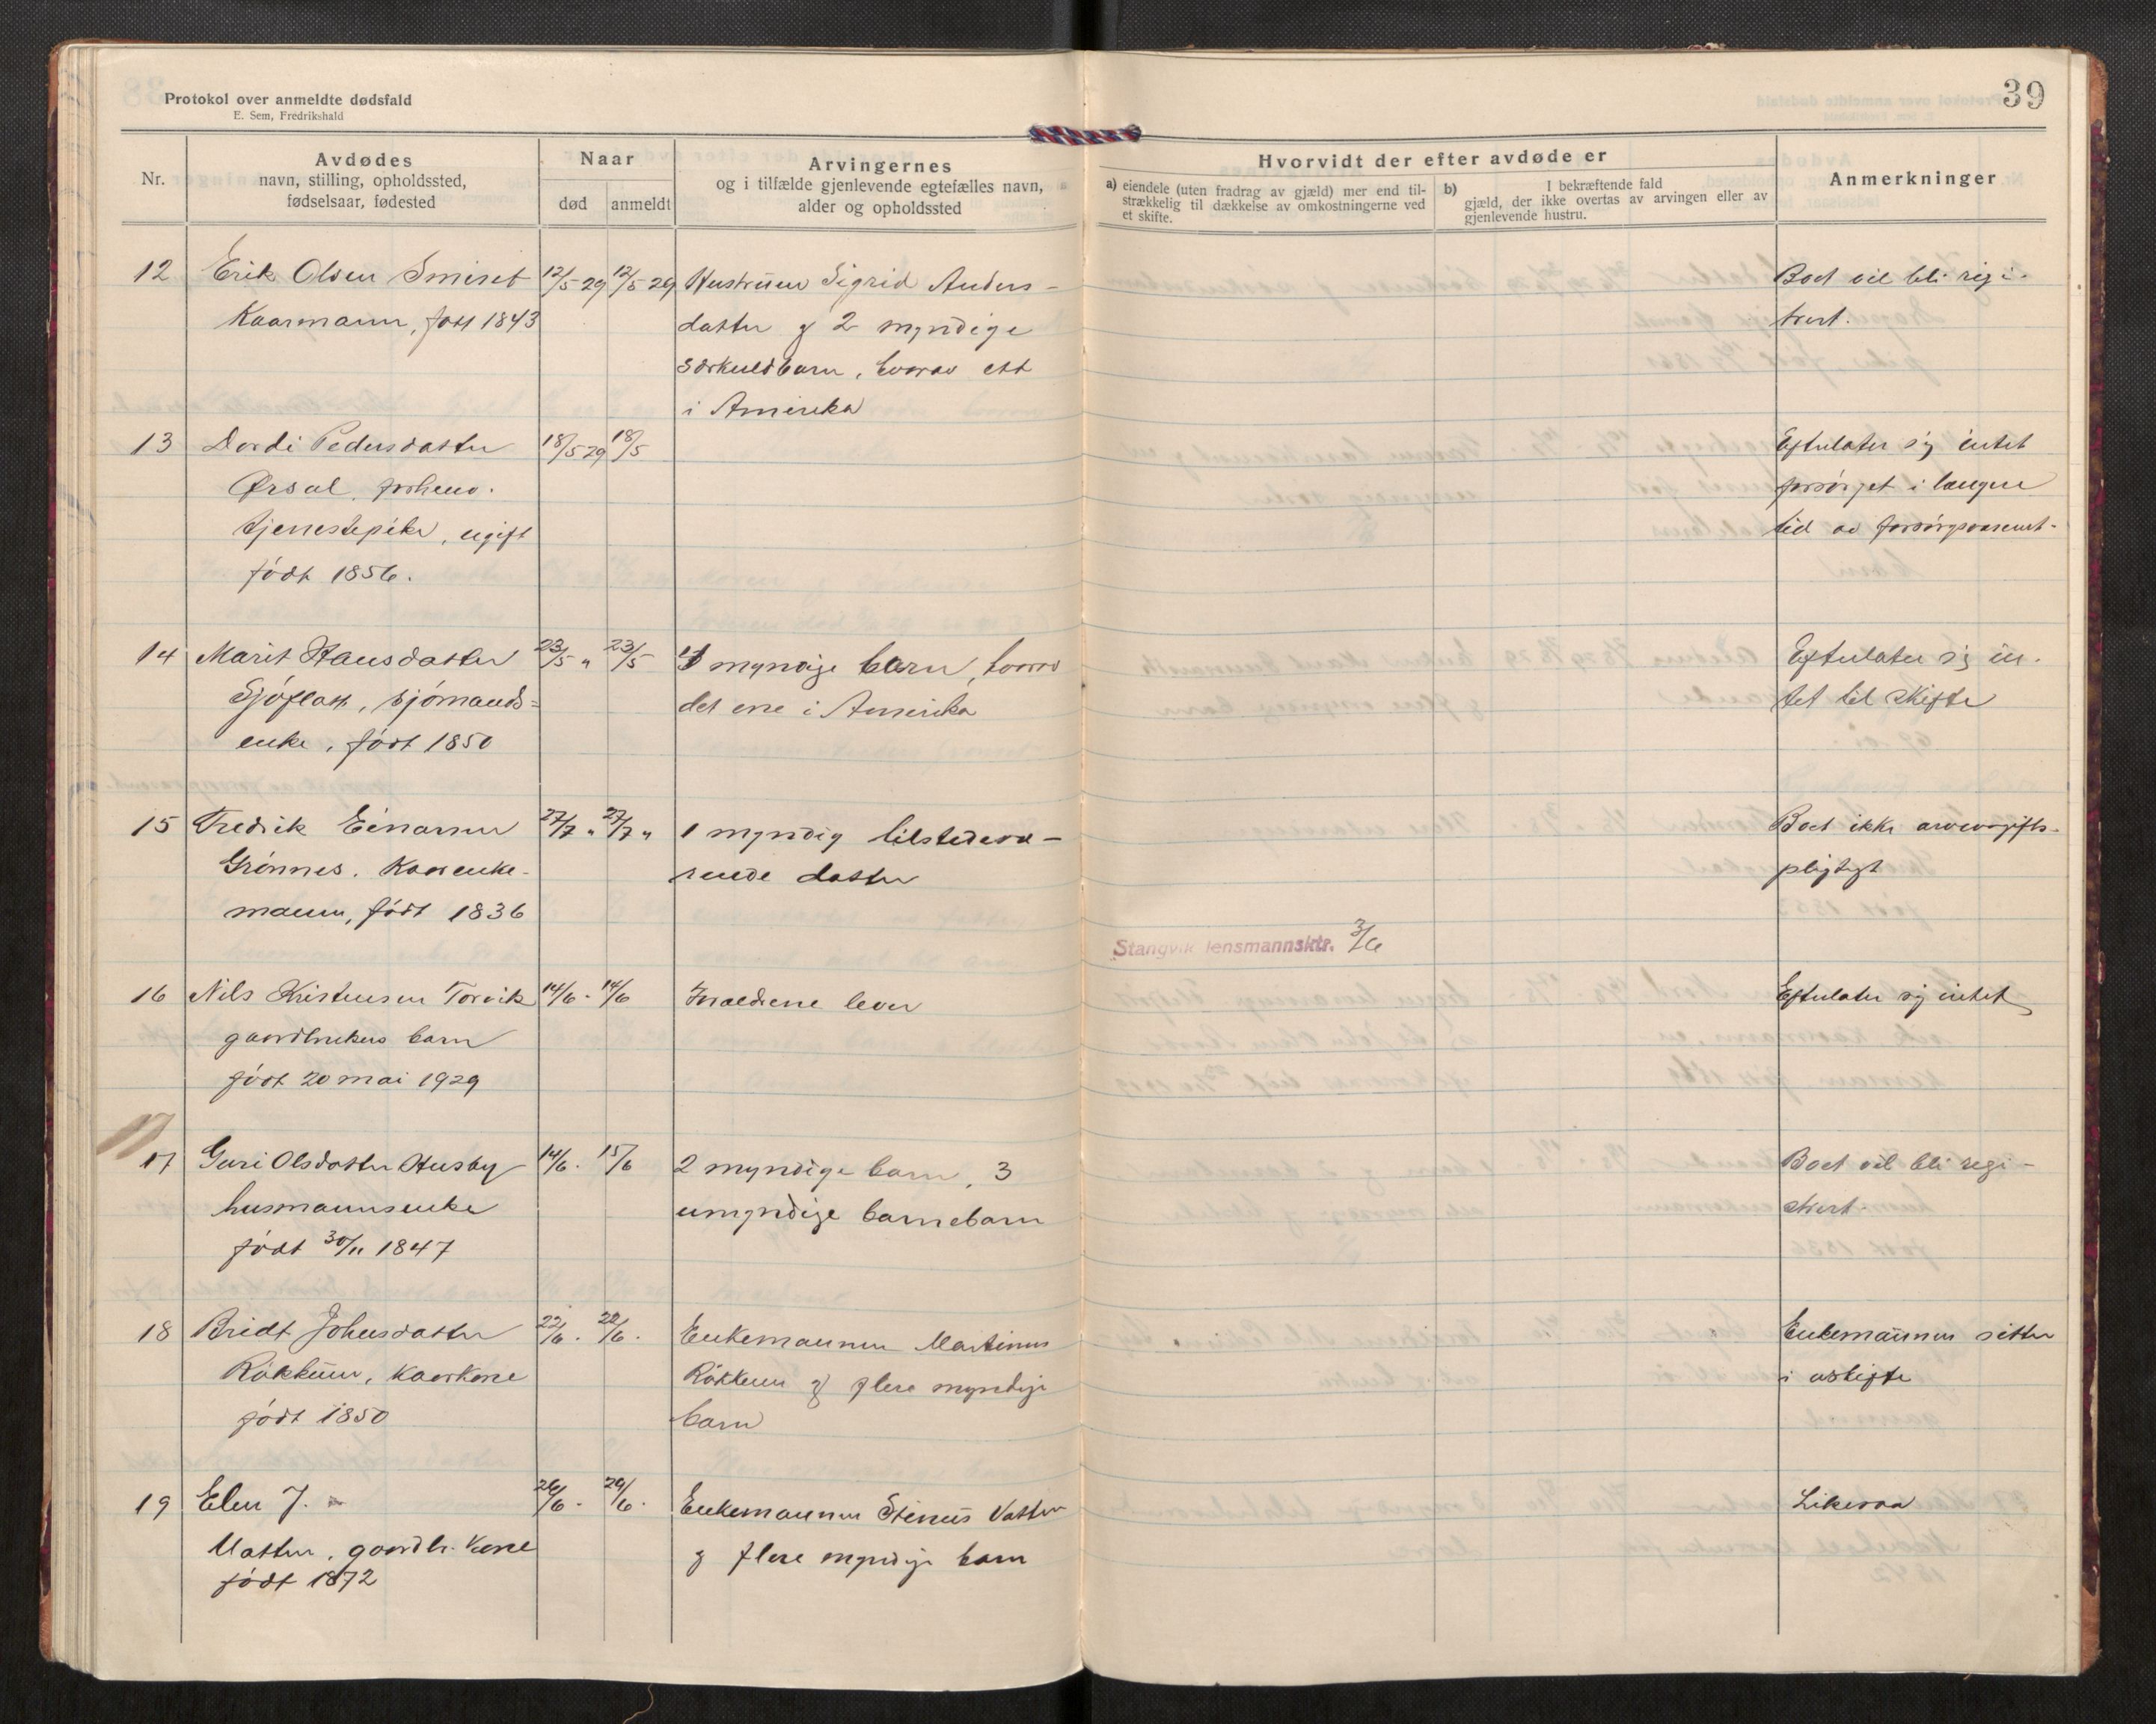 39
Protokol over anmeldte dødsfald
E. Sem, Fredrikshald
Nr.
Avdødes
navn, stilling, opholdssted,
fødselsaar, fødested
Naar
død
anmeldt
Arvingernes
og i tilfælde gjenlevende egtefælles navn,
alder og opholdssted
Hvorvidt der efter avdøde er
a) eiendele (uten fradrag av gjæld) mer end til-
strækkelig til dækkelse av omkostningerne ved
et skifte.
b) I bekræftende fald
gjæld, der ikke overtas av arvingen eller av
gjenlevende hustru.
Anmerkninger
12 Erik Olsen Smiset 12/5-29 12/5-29 Hustruen Sigrid Anders- Boet vil bli regi-
Kaarmann, født 1843 datter og 2 myndige strert.
særkuldbarn, hvorav ett
i Amerika
13 Dordi Pedersdatter 18/5 29 18/5 Efterlater sig intet
Ørsal, forhenv. forsørget i længere
tjenestepike, ugift tid av forsorgsvæsenet
født 1856.
14 Marit Hansdatter 23/5 " 23/5 myndige barn, hvorav Efterlater sig in-
Sjøflatt, sjømands- det ene i Amerika tet til skifte
enke, født 1850
15 Fredrik Einarsen 27/7 " 27/7 " 1 myndig tilstedevæ- Boet ikke arveavgifts-
Grønnes, Kaarenke- rende datter pligtigt
mann, født 1836
Stangvik lensmannsktr. 3/6
16 Nils Kristensen Torvik 14/6 - 14/6 Foreldrene lever Efterlater sig intet
gaardbrukers barn
født 20 mai 1929
17
17 Guri Olsdatter Husby 14/6 - 15/6 2 myndige barn, 3 Boet vil bli regi-
husmannsenke umyndige barnebarn strert.
født 30/11 1847
18 Bridt Johnsdatter 22/6 - 22/6 - Enkemannen Martinus Enkemannen sitter
Røkkum, Kaarkone Røkkum og flere myndige i uskifte
født 1850 barn
19 Elen J. 26/6 - 29/6 - Enkemannen Stenus Vatten Likesaa
Vatten, gaardbr. kone og flere myndige barn
født 1872